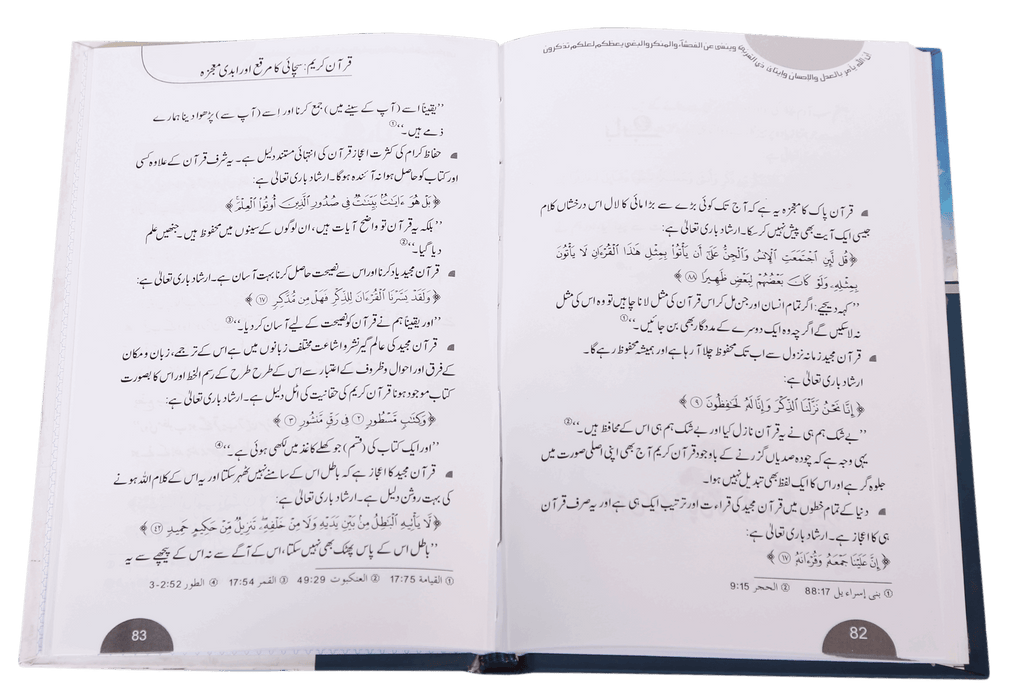 ان الله يامر بالعدل والاحسان وايتاى ذي القربى وينهى عن الفحشاء والمنكر والبغي يعظكم لعلكم تذكرون
قرآن پاک کا معجزہ یہ ہے کہ آج تک کوئی بڑے سے بڑا مائی کا لال اس درخشاں کلام
جیسی ایک آیت بھی پیش نہیں کر سکا۔ ارشاد باری تعالیٰ ہے:
﴿قُل لَّئِنِ ٱجۡتَمَعَتِ ٱلۡإِنسُ وَٱلۡجِنُّ عَلَىٰٓ أَن يَأۡتُواْ بِمِثۡلِ هَٰذَا ٱلۡقُرۡءَانِ لَا يَأۡتُونَ
بِمِثۡلِهِۦ وَلَوۡ كَانَ بَعۡضُهُمۡ لِبَعۡضٖ ظَهِيرٗا ٨٨﴾
”کہہ دیجیے: اگر تمام انسان اور جن مل کر اس قرآن کی مثل لانا چاہیں تو وہ اس کی مثل
نہ لا سکیں گے اگرچہ وہ ایک دوسرے کے مددگار بھی بن جائیں۔“①
قرآن مجید زمانہ نزول سے اب تک محفوظ چلا آ رہا ہے اور ہمیشہ محفوظ رہے گا۔
ارشاد باری تعالیٰ ہے:
﴿إِنَّا نَحۡنُ نَزَّلۡنَا ٱلذِّكۡرَ وَإِنَّا لَهُۥ لَحَٰفِظُونَ ٩﴾
”بے شک ہم ہی نے یہ قرآن نازل کیا اور بے شک ہم ہی اس کے محافظ ہیں۔“②
یہی وجہ ہے کہ چودہ صدیاں گزرنے کے باوجود قرآن کریم آج بھی اپنی اصلی صورت میں
جلوہ گر ہے اور اس کا ایک لفظ بھی تبدیل نہیں ہوا۔
دنیا کے تمام خطوں میں قرآن مجید کی قراءت اور ترتیب ایک ہی ہے اور یہ صرف قرآن
ہی کا اعجاز ہے۔ ارشاد باری تعالیٰ ہے:
﴿إِنَّ عَلَيۡنَا جَمۡعَهُۥ وَقُرۡءَانَهُۥ ١٧﴾
① بنی إسراءیل 88:17 ② الحجر 9:15
82
قرآن کریم: سچائی کا مرقع اور ابدی معجزہ
”یقیناً اسے (آپ کے سینے میں) جمع کرنا اور اسے (آپ سے) پڑھوا دینا ہمارے
ذمے ہیں۔“①
حفاظ کرام کی کثرت اعجاز قرآن کی انتہائی مستند دلیل ہے۔ یہ شرف قرآن کے علاوہ کسی
اور کتاب کو حاصل ہوا نہ آئندہ ہوگا۔ ارشاد باری تعالیٰ ہے:
﴿بَلۡ هُوَ ءَايَٰتُۢ بَيِّنَٰتٞ فِي صُدُورِ ٱلَّذِينَ أُوتُواْ ٱلۡعِلۡمَ﴾
”بلکہ یہ قرآن تو واضح آیات ہیں، ان لوگوں کے سینوں میں محفوظ ہیں۔ جنھیں علم
دیا گیا۔“②
قرآن مجید یاد کرنا اور اس سے نصیحت حاصل کرنا بہت آسان ہے۔ ارشاد باری تعالیٰ ہے:
﴿وَلَقَدۡ يَسَّرۡنَا ٱلۡقُرۡءَانَ لِلذِّكۡرِ فَهَلۡ مِن مُّدَّكِرٖ ١٧﴾
”اور یقیناً ہم نے قرآن کو نصیحت کے لیے آسان کر دیا۔“③
قرآن مجید کی عالم گیر نشر و اشاعت مختلف زبانوں میں ہے اس کے ترجمے، زبان و مکان
کے فرق اور احوال و ظروف کے اعتبار سے اس کے طرح طرح کے رسم الخط اور اس کا بصورت
کتاب موجود ہونا قرآن کریم کی حقانیت کی اٹل دلیل ہے۔ ارشاد باری تعالیٰ ہے:
﴿وَكِتَٰبٖ مَّسۡطُورٖ ٢ فِي رَقّٖ مَّنشُورٖ ٣﴾
”اور ایک کتاب کی (قسم) جو کھلے کاغذ میں لکھی ہوئی ہے۔“④
قرآن مجید کا اعجاز ہے کہ باطل اس کے سامنے نہیں ٹھہر سکتا اور یہ اس کے کلام اللہ ہونے
کی بہت روشن دلیل ہے۔ ارشاد باری تعالیٰ ہے:
﴿لَّا يَأۡتِيهِ ٱلۡبَٰطِلُ مِنۢ بَيۡنِ يَدَيۡهِ وَلَا مِنۡ خَلۡفِهِۦۖ تَنزِيلٞ مِّنۡ حَكِيمٍ حَمِيدٖ ٤٢﴾
”باطل اس کے پاس پھٹک بھی نہیں سکتا، اس کے آگے سے نہ اس کے پیچھے سے یہ
① القیامة 17:75 ② العنکبوت 49:29 ③ القمر 17:54 ④ الطور 3-2:52
83